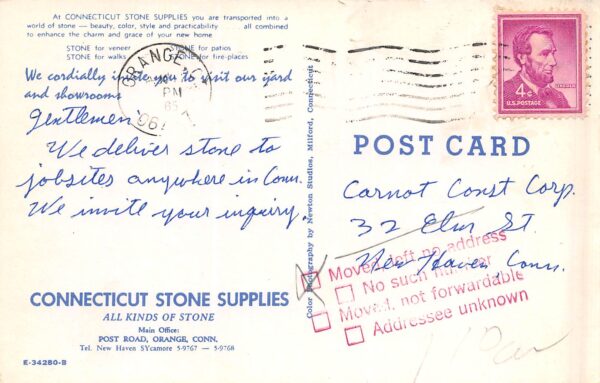 At CONNECTICUT STONE SUPPLIES you are transported into a
world of stone — beauty, color, style and practicability all combined
to enhance the charm and grace of your new home
STONE for veneer STONE for patios
STONE for walks STONE for fire-places
We cordially invite you to visit our yard
and showrooms
Gentlemen,
We deliver stone to
jobsites anywhere in Conn.
We invite your inquiry.
CONNECTICUT STONE SUPPLIES
ALL KINDS OF STONE
Main Office:
POST ROAD, ORANGE, CONN.
Tel. New Haven SYcamore 5-9767 — 5-9768
E-34280-B
ORANGE
PM
196
Color Photography by Newton Studios, Milford, Connecticut
LINCOLN
4¢
U.S. POSTAGE
POST CARD
Carnot Const Corp.
32 Elm St.
New Haven, Conn.
Moved, left no address
No such number
Moved, not forwardable
Addressee unknown